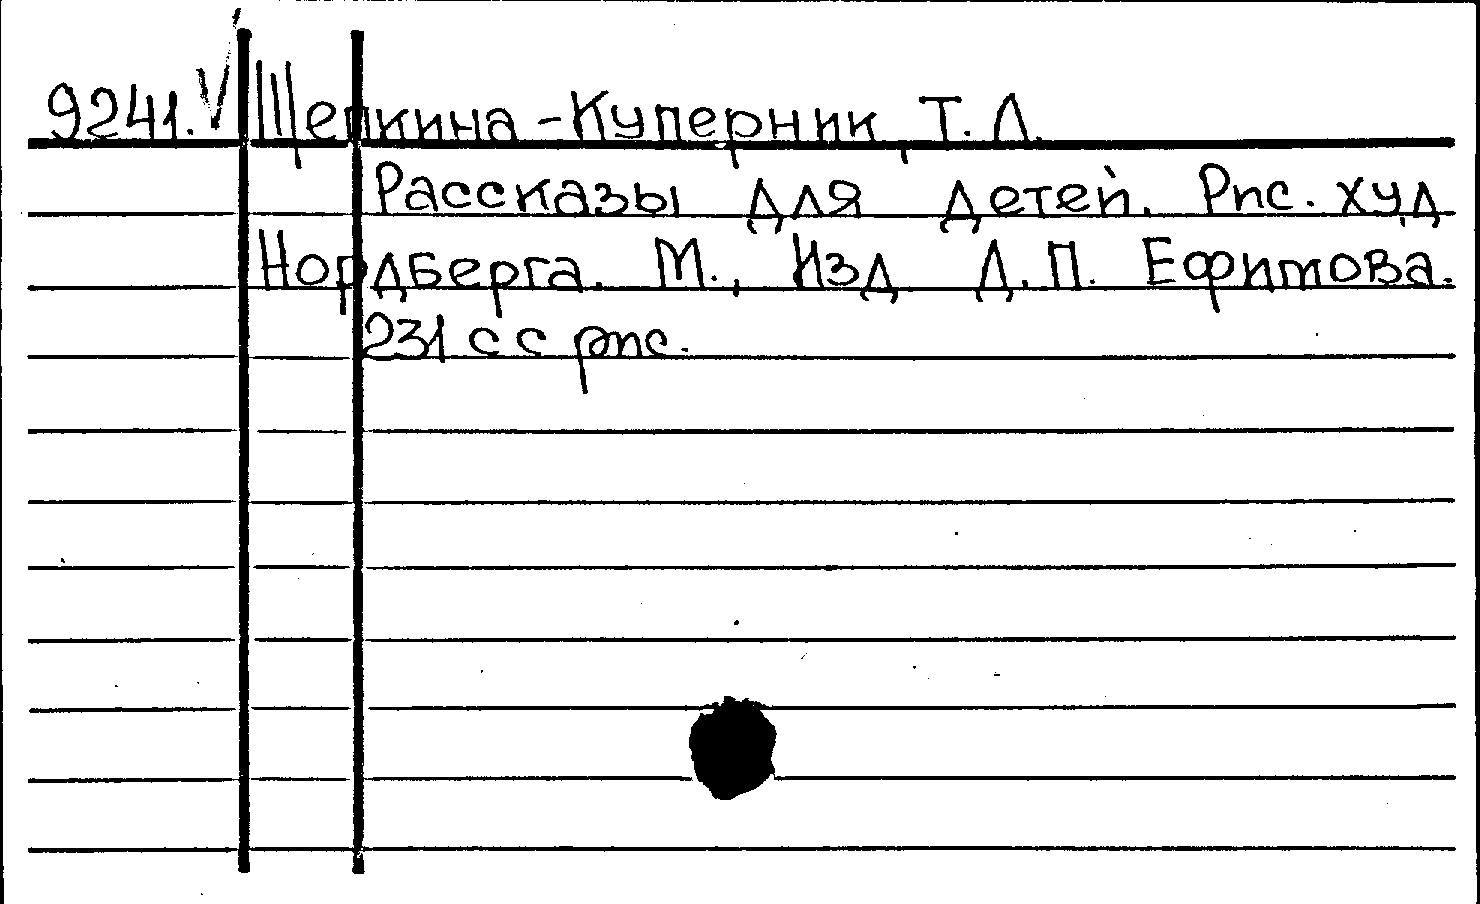 9241. V Щепкина-Куперник, Т. Л.
Рассказы для детей. Рис. худ
Нордберга. М., Изд Д. П. Ефимова.
231 с с рис.